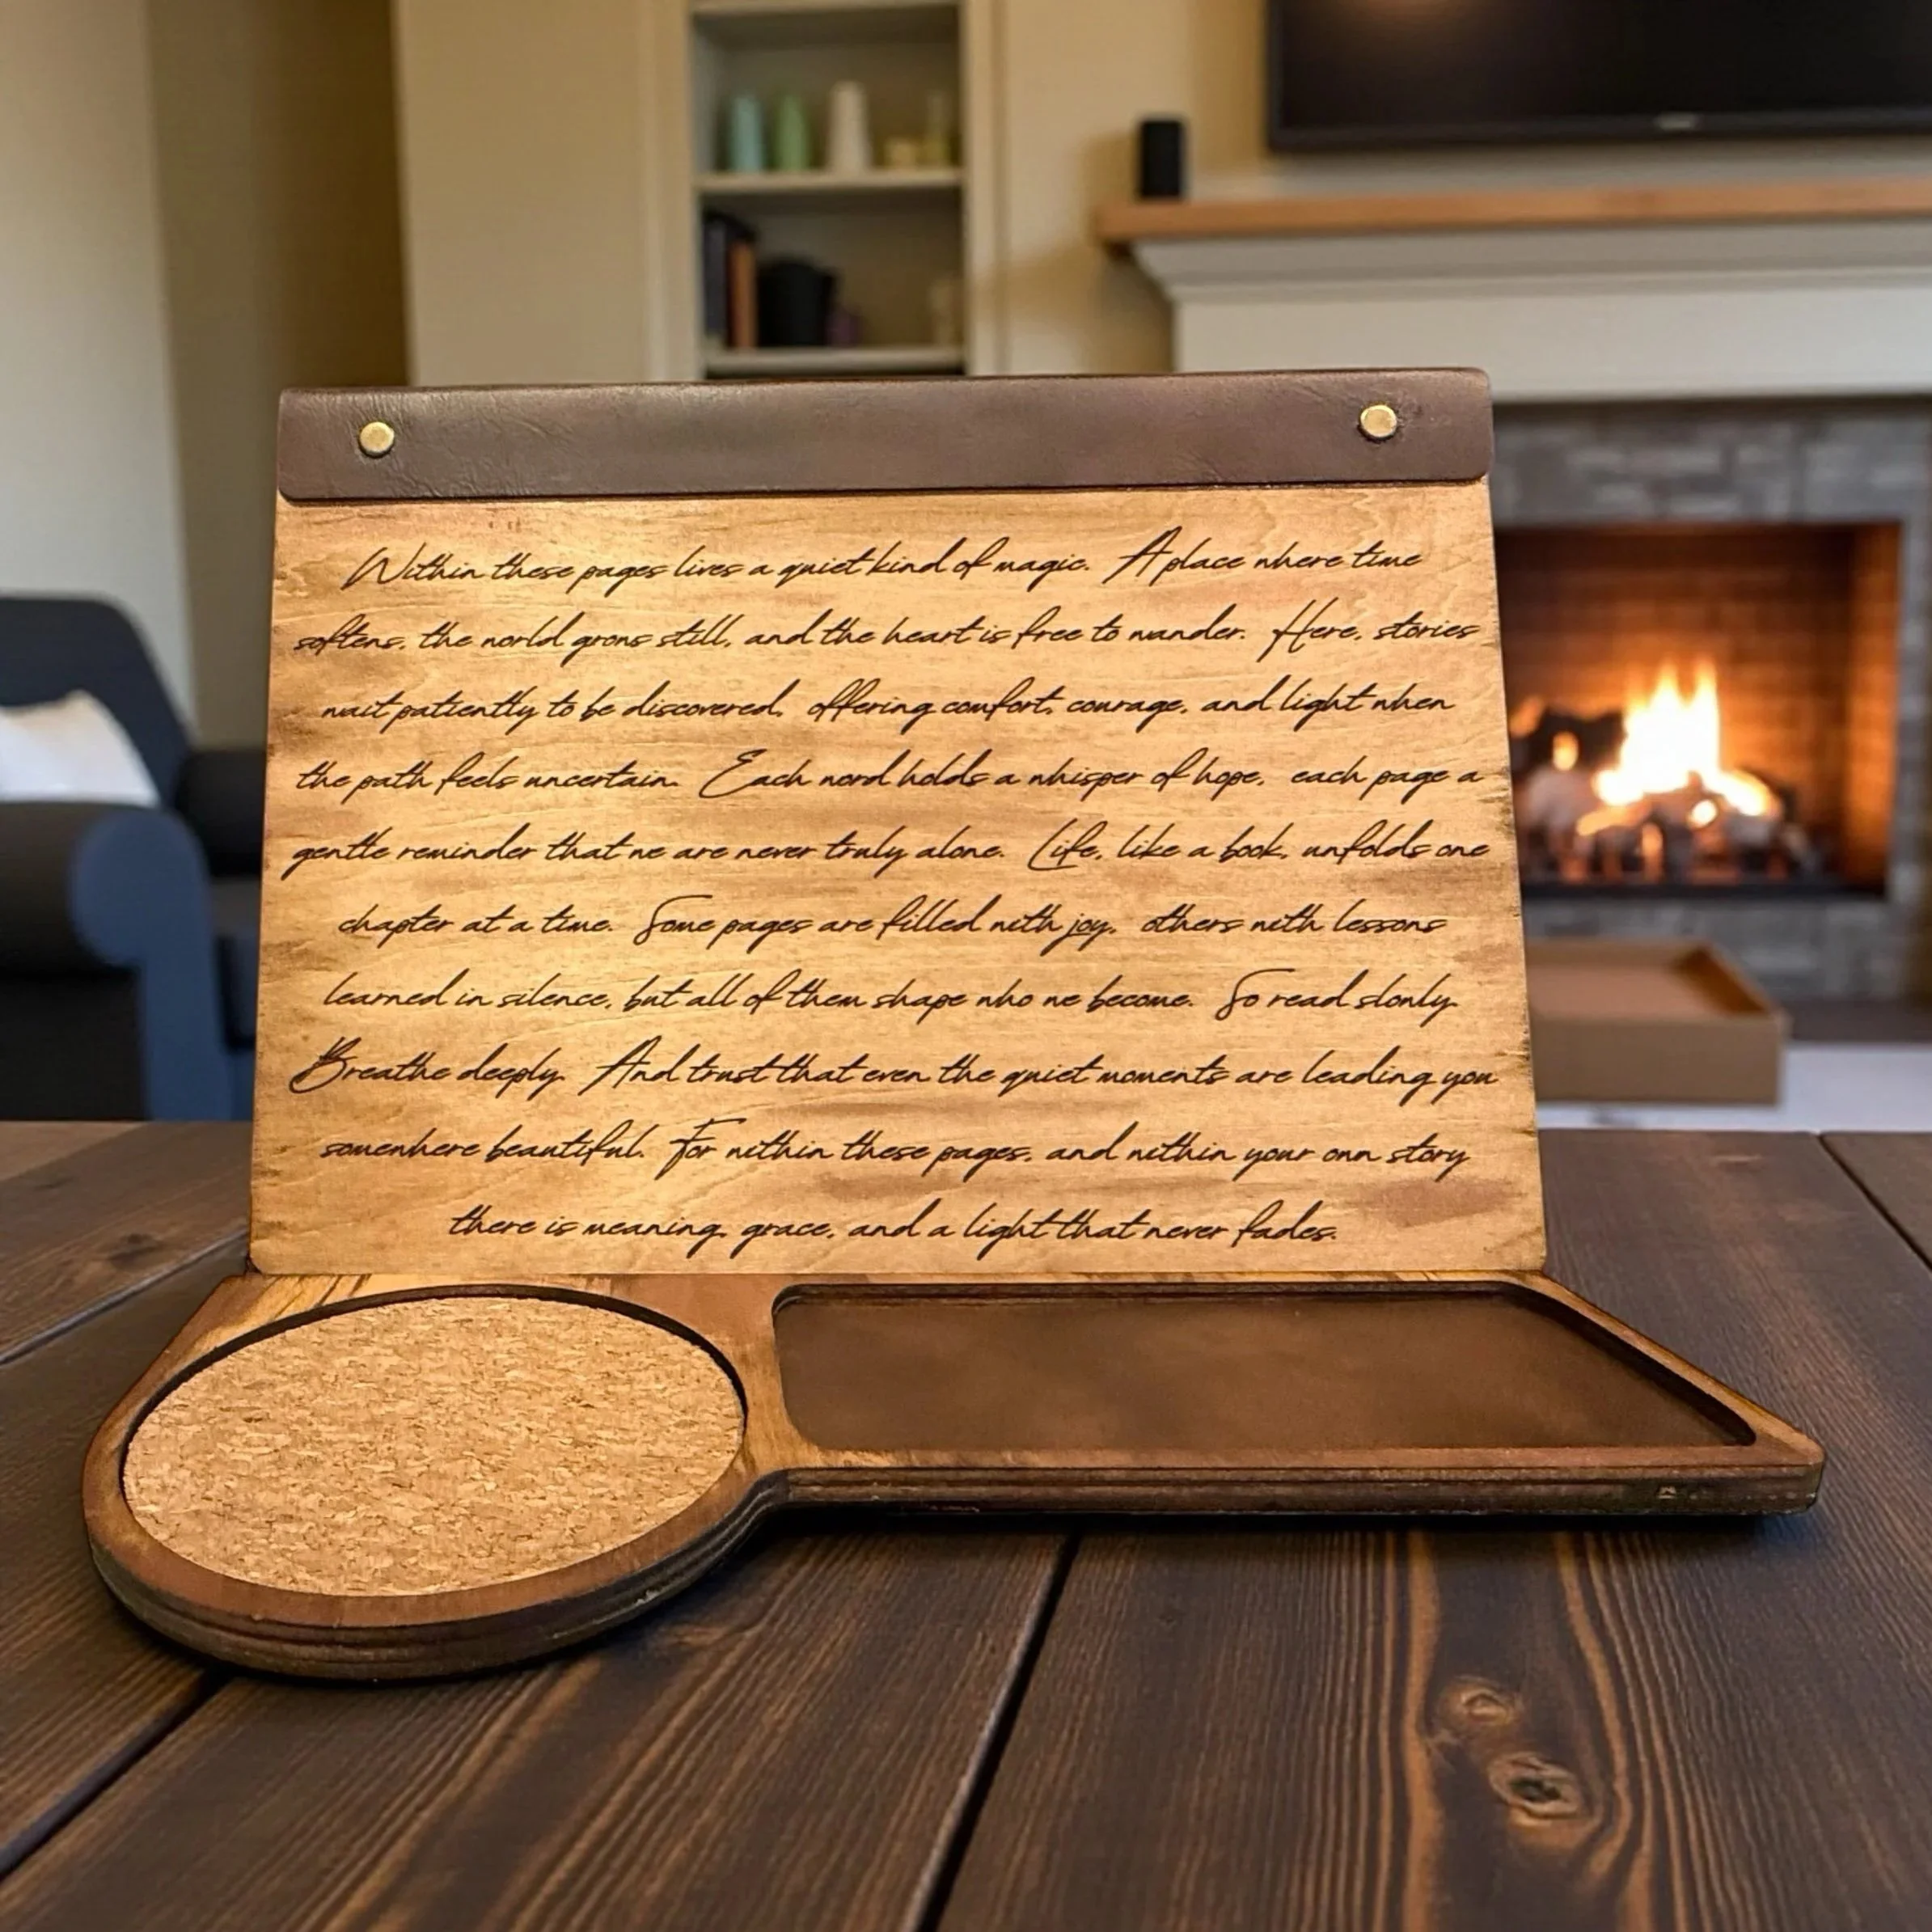 Within these pages lives a quiet kind of magic. A place where time
softens, the world grows still, and the heart is free to wander. Here, stories
wait patiently to be discovered, offering comfort, courage, and light when
the path feels uncertain. Each word holds a whisper of hope, each page a
gentle reminder that we are never truly alone. Life, like a book, unfolds one
chapter at a time. Some pages are filled with joy, others with lessons
learned in silence, but all of them shape who we become. So read slowly.
Breathe deeply. And trust that even the quiet moments are leading you
somewhere beautiful. For within these pages, and within your own story
there is meaning, grace, and a light that never fades.